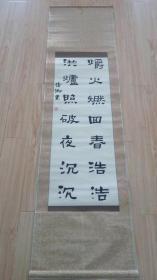 爝火燃回春浩浩
洪爐照破夜沉沉